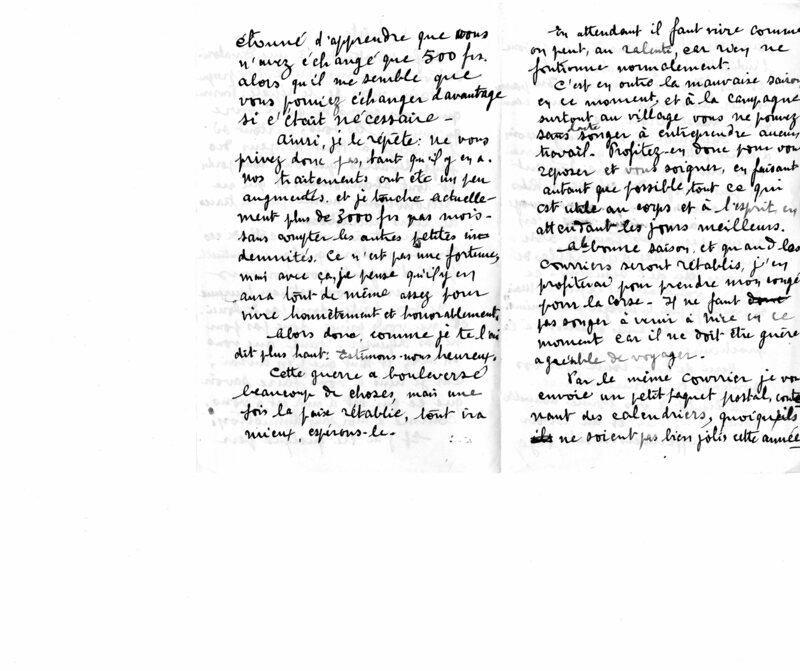 étonné d'apprendre que vous
n'avez échangé que 500 frs.
alors qu'il me semble que
vous pouviez échanger davantage
si c'était nécessaire -
Ainsi, je le répète: ne vous
privez donc pas, tant qu'il y en a.
Nos traitements ont été un peu
augmentés, et je touche actuelle-
ment plus de 3000 frs par mois -
sans compter les autres petites in-
demnités. Ce n'est pas une fortune,
mais avec ça, je pense qu'il y en
aura tout de même assez pour
vivre honnêtement et honorablement.
Alors donc, comme je te l'ai
dit plus haut: Estimons-nous heureux.
Cette guerre a bouleversé
beaucoup de choses, mais une
fois la paix rétablie, tout ira
mieux, espérons-le.
En attendant il faut vivre comme
on peut, au ralenti, car rien ne
fontionne normalement.
C'est en outre la mauvaise saison
en ce moment, et à la campagne
surtout au village vous ne pouvez
sans doute songer à entreprendre aucun
travail. Profitez-en donc pour vous
reposer et vous soigner, en faisant
autant que possible tout ce qui
est utile au corps et à l'esprit, en
attendant les jours meilleurs.
A la bonne saison, et quand les
Courriers seront rétablis, j'en
profiterai pour prendre mon congé
pour la Corse - Il ne faut donc
pas songer à venir à Nice en ce
moment car il ne doit être guère
agréable de voyager.
Par le même Courrier je vous
envoie un petit paquet postal, conte
nant des calendriers, quoiqu'ils
ils ne soient pas bien jolis cette année